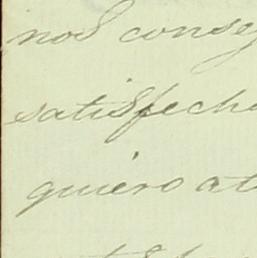 nos conse
satisfech
quiero at